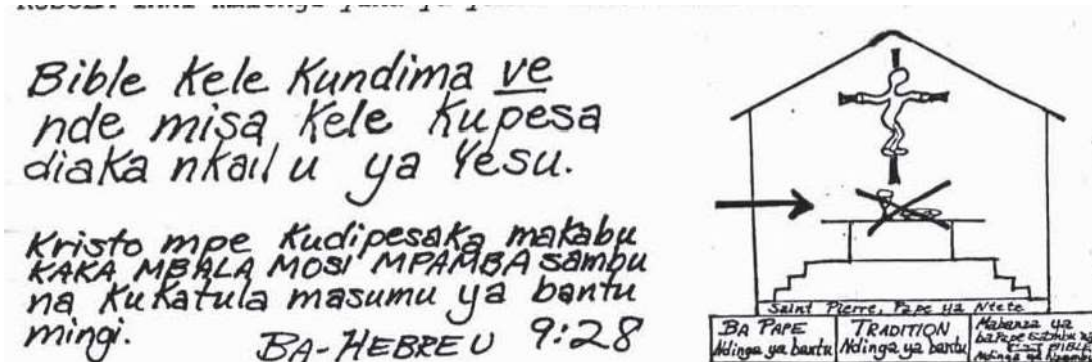 Bible kele kundima ve
nde misa kele kupesa
diaka nkailu ya Yesu.
Kristo mpe kudipesaka makabu
KAKA MBALA MOSI MPAMBA sambu
na kukatula masumu ya bantu
mingi.
BA-HEBREU 9:28
Saint Pierre, Pape ya Ntete
BA PAPE
Ndinga ya bantu
TRADITION
Ndinga ya bantu
Mabanza ya
ba Pape